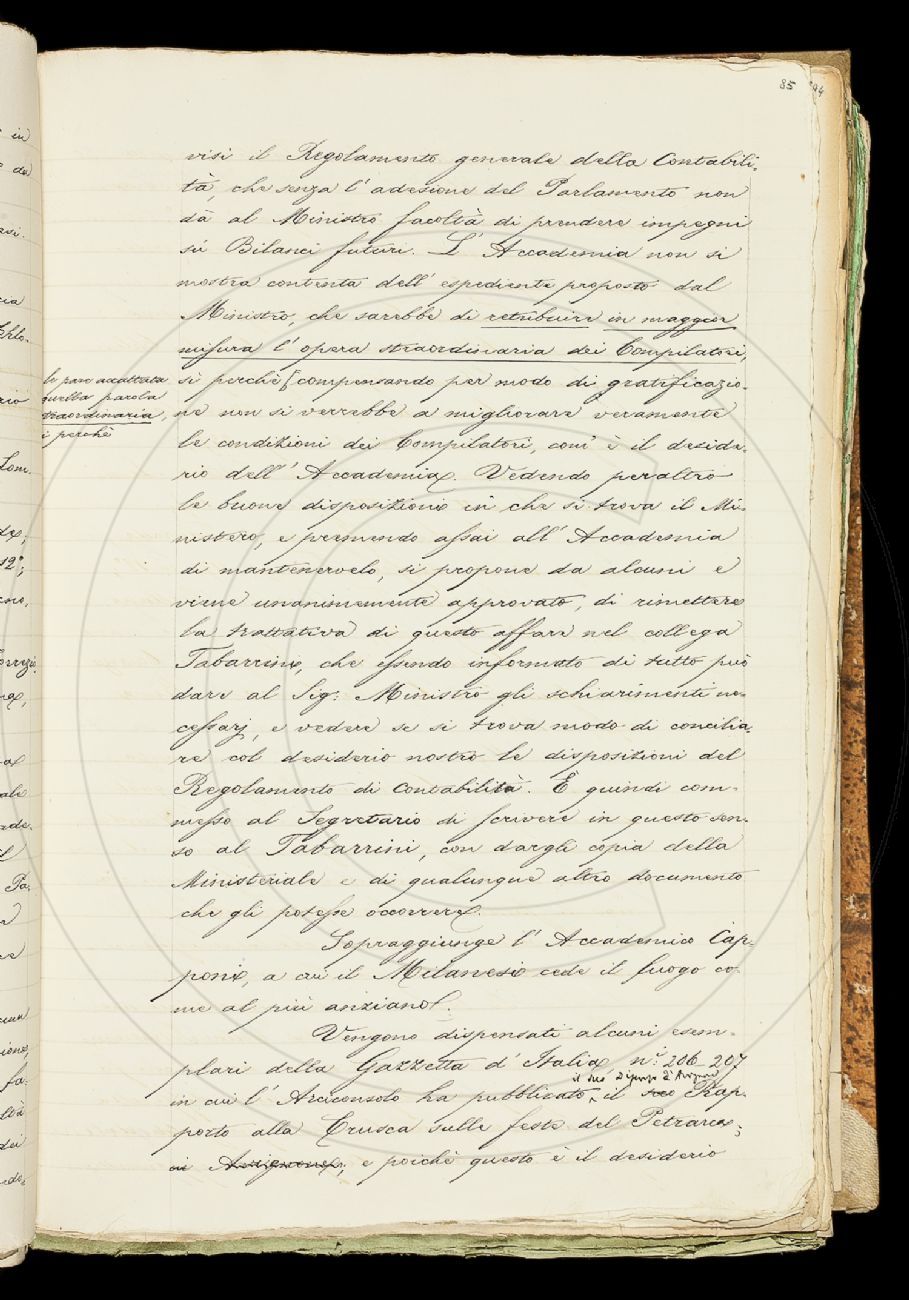 85
94
visi il Regolamento generale della Contabili-
tà, che senza l'adesione del Parlamento non
dà al Ministro facoltà di prendere impegni
sù Bilanci futuri. L'Accademia non si
mostra contenta dell'espediente proposto dal
Ministro, che sarebbe di retribuire in maggior
misura l'opera straordinaria dei Compilatori,
sì perchè [compensando per modo di gratificazio-
ne non si verrebbe a migliorare veramente
le condizioni dei Compilatori, com'è il deside-
rio dell'Accademia. Vedendo peraltro
le buone disposizioni in che si trova il Mi-
nistero, e premendo assai all'Accademia
di mantenervelo, si propone da alcuni e
viene unanimemente approvato, di rimettere
la trattativa di questo affare nel collega
Tabarrini, che essendo informato di tutto può
dare al Sig: Ministro gli schiarimenti ne-
cessarj, e vedere se si trova modo di concilia-
re col desiderio nostro le disposizioni del
Regolamento di Contabilità. È quindi com-
messo al Segretario di scrivere in questo sen-
so al Tabarrini, con dargli copia della
Ministeriale e di qualunque altro documento
che gli potesse occorrere.
Sopraggiunge l'Accademico Cap-
poni, a cui il Milanesi cede il luogo co-
me al più anziano.
Vengono dispensati alcuni esem-
plari della Gazzetta d'Italia n.i 206-207
in cui l'Arciconsolo ha pubblicato il suo Rap-
porto alla Crusca sulle feste del Petrarca
in Avignone, e poichè questo è il desiderio
le pare adattata
quella parola
straordinaria,
sì perchè